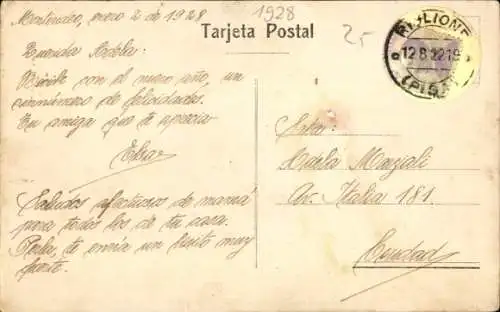 Montevideo, enero 2 de 1928
1928
Tarjeta Postal
25
RIGLIONE
12.8.22.19
(PISA)
Querida Adela:
Recibe con el nuevo año, un
sinnúmero de felicidades.
Tu amiga que te aprecia
Elsa
Saludos afectuosos de mamá
para todos los de tu casa.
Perla, te envía un besito muy
fuerte.
Srta:
Adela Marziali
Av. Italia 181.
Ciudad